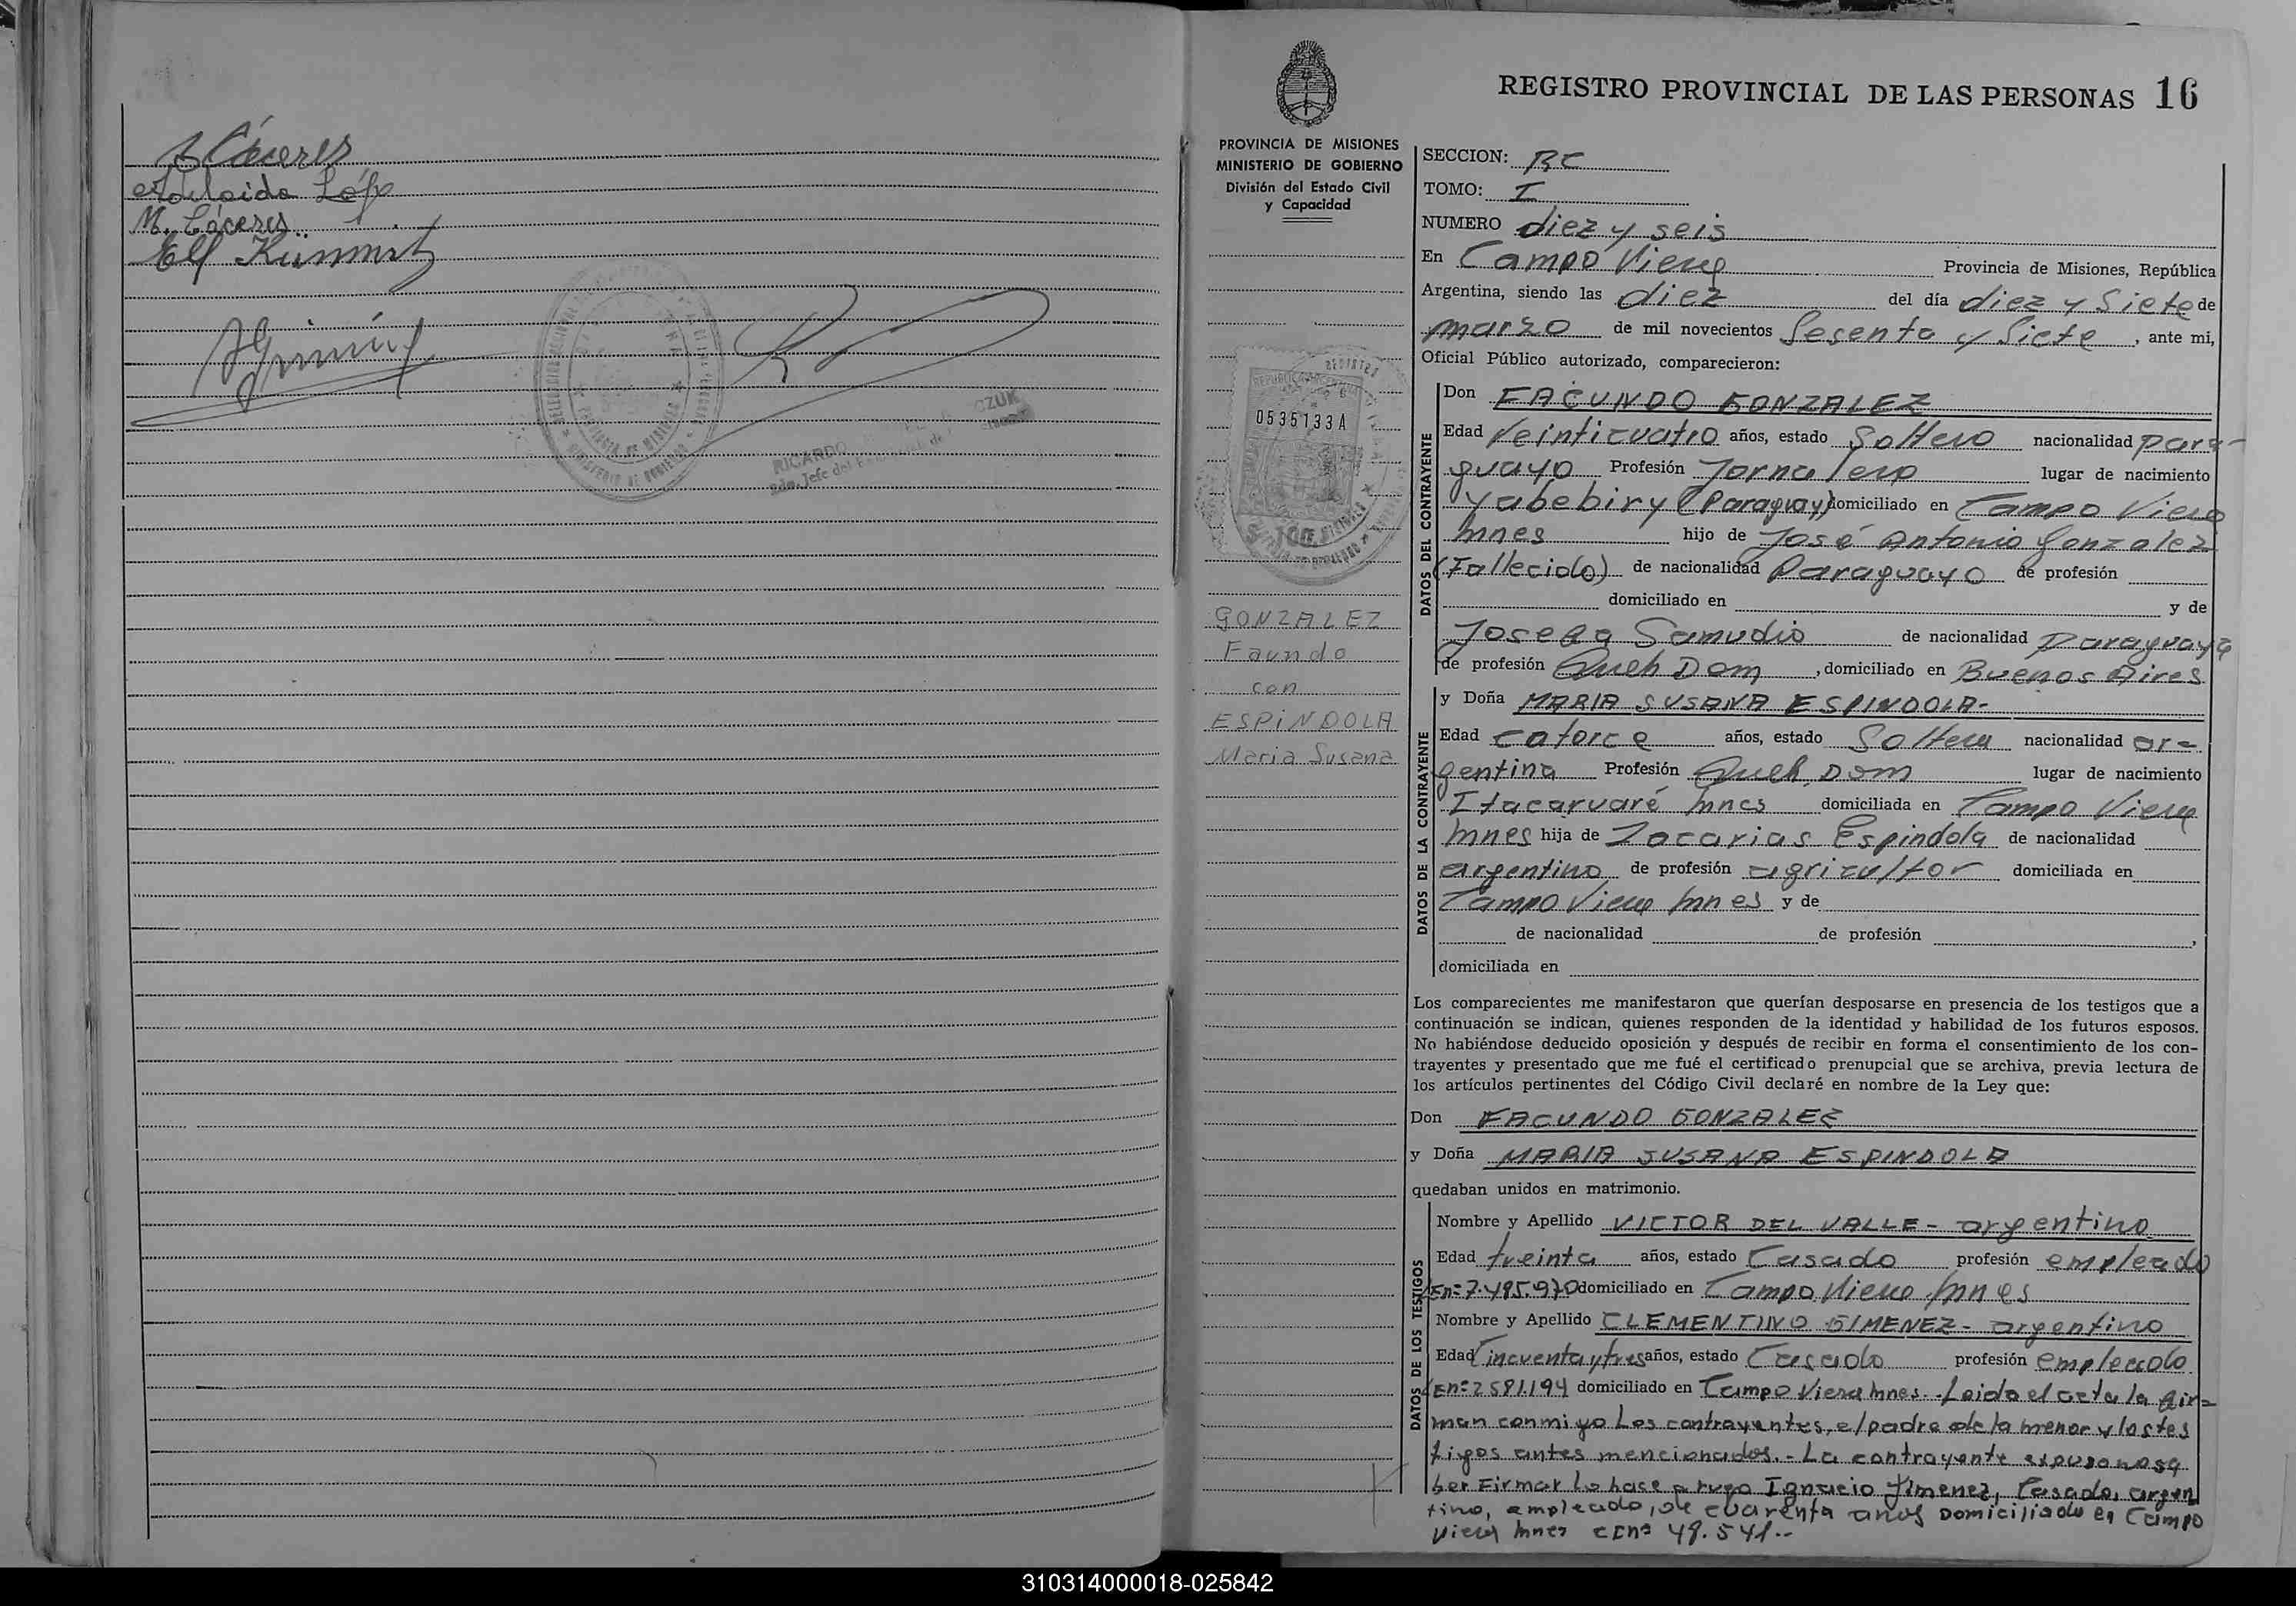 A Cáceres
Adelaida Lóp
M. Cáceres
RICARDO
REGISTRO PROVINCIAL DE LAS PERSONAS 16
PROVINCIA DE MISIONES
MINISTERIO DE GOBIERNO
División del Estado Civil
y Capacidad
REPUBLICA ARGENTINA
0535133A
GONZALEZ
Faundo
con
ESPINDOLA
Maria Susana
SECCION: RC
TOMO: I
NUMERO diez y seis
En Campo Viera Provincia de Misiones, República
Argentina, siendo las diez del día diez y Siete de
marzo de mil novecientos Sesenta y Siete, ante mi,
Oficial Público autorizado, comparecieron:
DATOS DEL CONTRAYENTE
Don FACUNDO GONZALEZ
Edad Veinticuatro años, estado Soltero nacionalidad para-
guayo Profesión Jornalero lugar de nacimiento
Yabebiry (Paraguay) domiciliado en Campo Viera
Mnes hijo de José Antonio Gonzalez
(Fallecido) de nacionalidad Paraguayo de profesión
domiciliado en y de
Josefa Samudio de nacionalidad Paraguaya
de profesión Queh Dom, domiciliado en Buenos Aires
DATOS DE LA CONTRAYENTE
y Doña MARIA SUSANA ESPINDOLA-
Edad catorce años, estado Soltera nacionalidad ar=
gentina Profesión Queh. Dom lugar de nacimiento
Itacaruaré Mnes domiciliada en Campo Viera
Mnes hija de Zacarias Espindola de nacionalidad
argentino de profesión agricultor domiciliada en
Campo Viera Mnes y de
de nacionalidad de profesión ,
domiciliada en
Los comparecientes me manifestaron que querían desposarse en presencia de los testigos que a
continuación se indican, quienes responden de la identidad y habilidad de los futuros esposos.
No habiéndose deducido oposición y después de recibir en forma el consentimiento de los con-
trayentes y presentado que me fué el certificado prenupcial que se archiva, previa lectura de
los artículos pertinentes del Código Civil declaré en nombre de la Ley que:
Don FACUNDO GONZALEZ
y Doña MARIA SUSANA ESPINDOLA
quedaban unidos en matrimonio.
DATOS DE LOS TESTIGOS
Nombre y Apellido VICTOR DEL VALLE - argentino
Edad treinta años, estado Casado profesión empleado
LEnº 7.495.970 domiciliado en Campo Viera Mnes
Nombre y Apellido CLEMENTINO GIMENEZ - argentino
Edad Cincuenta y tres años, estado Casado profesión empleado
LEnº 2591.194 domiciliado en Campo Viera Mnes.- Leida el acta la fir=
man conmigo los contrayentes, el padre de la menor y los tes
tigos antes mencionados.- La contrayente expuso no sa
ber Firmar lo hace a ruego Ignacio Jimenez, Casado, argen
tino, empleado, de cuarenta años Domiciliado en Campo
Viera Mnes CInº 49.541.-
310314000018-025842